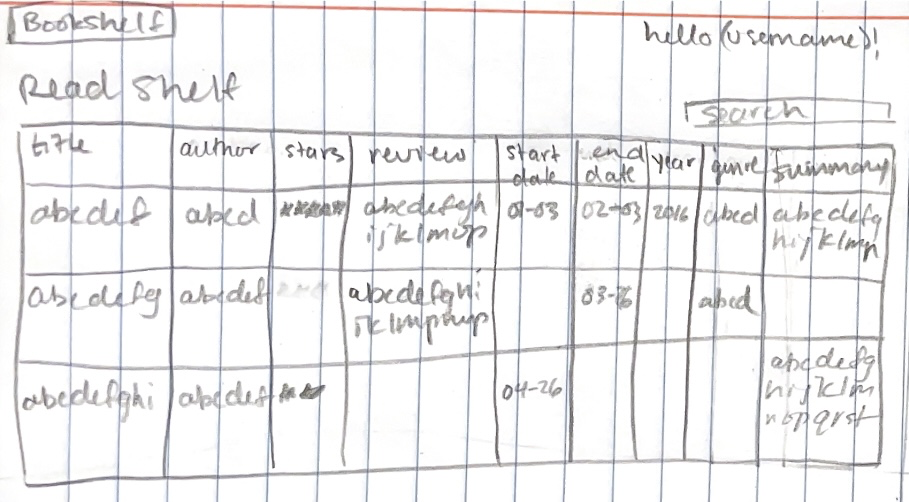 Bookshelf
hello (username)!
Read Shelf
search
title author stars review start date end date year genre summary
abcdef abcd abcdefgh ijklmop 01-03 02-03 2016 abcd abcdefg hijklmn
abcdefg abcdef abcdefghi 03-26 abcd
abcdefghi abcdef 04-26 abcdefg hijklm nopqrst